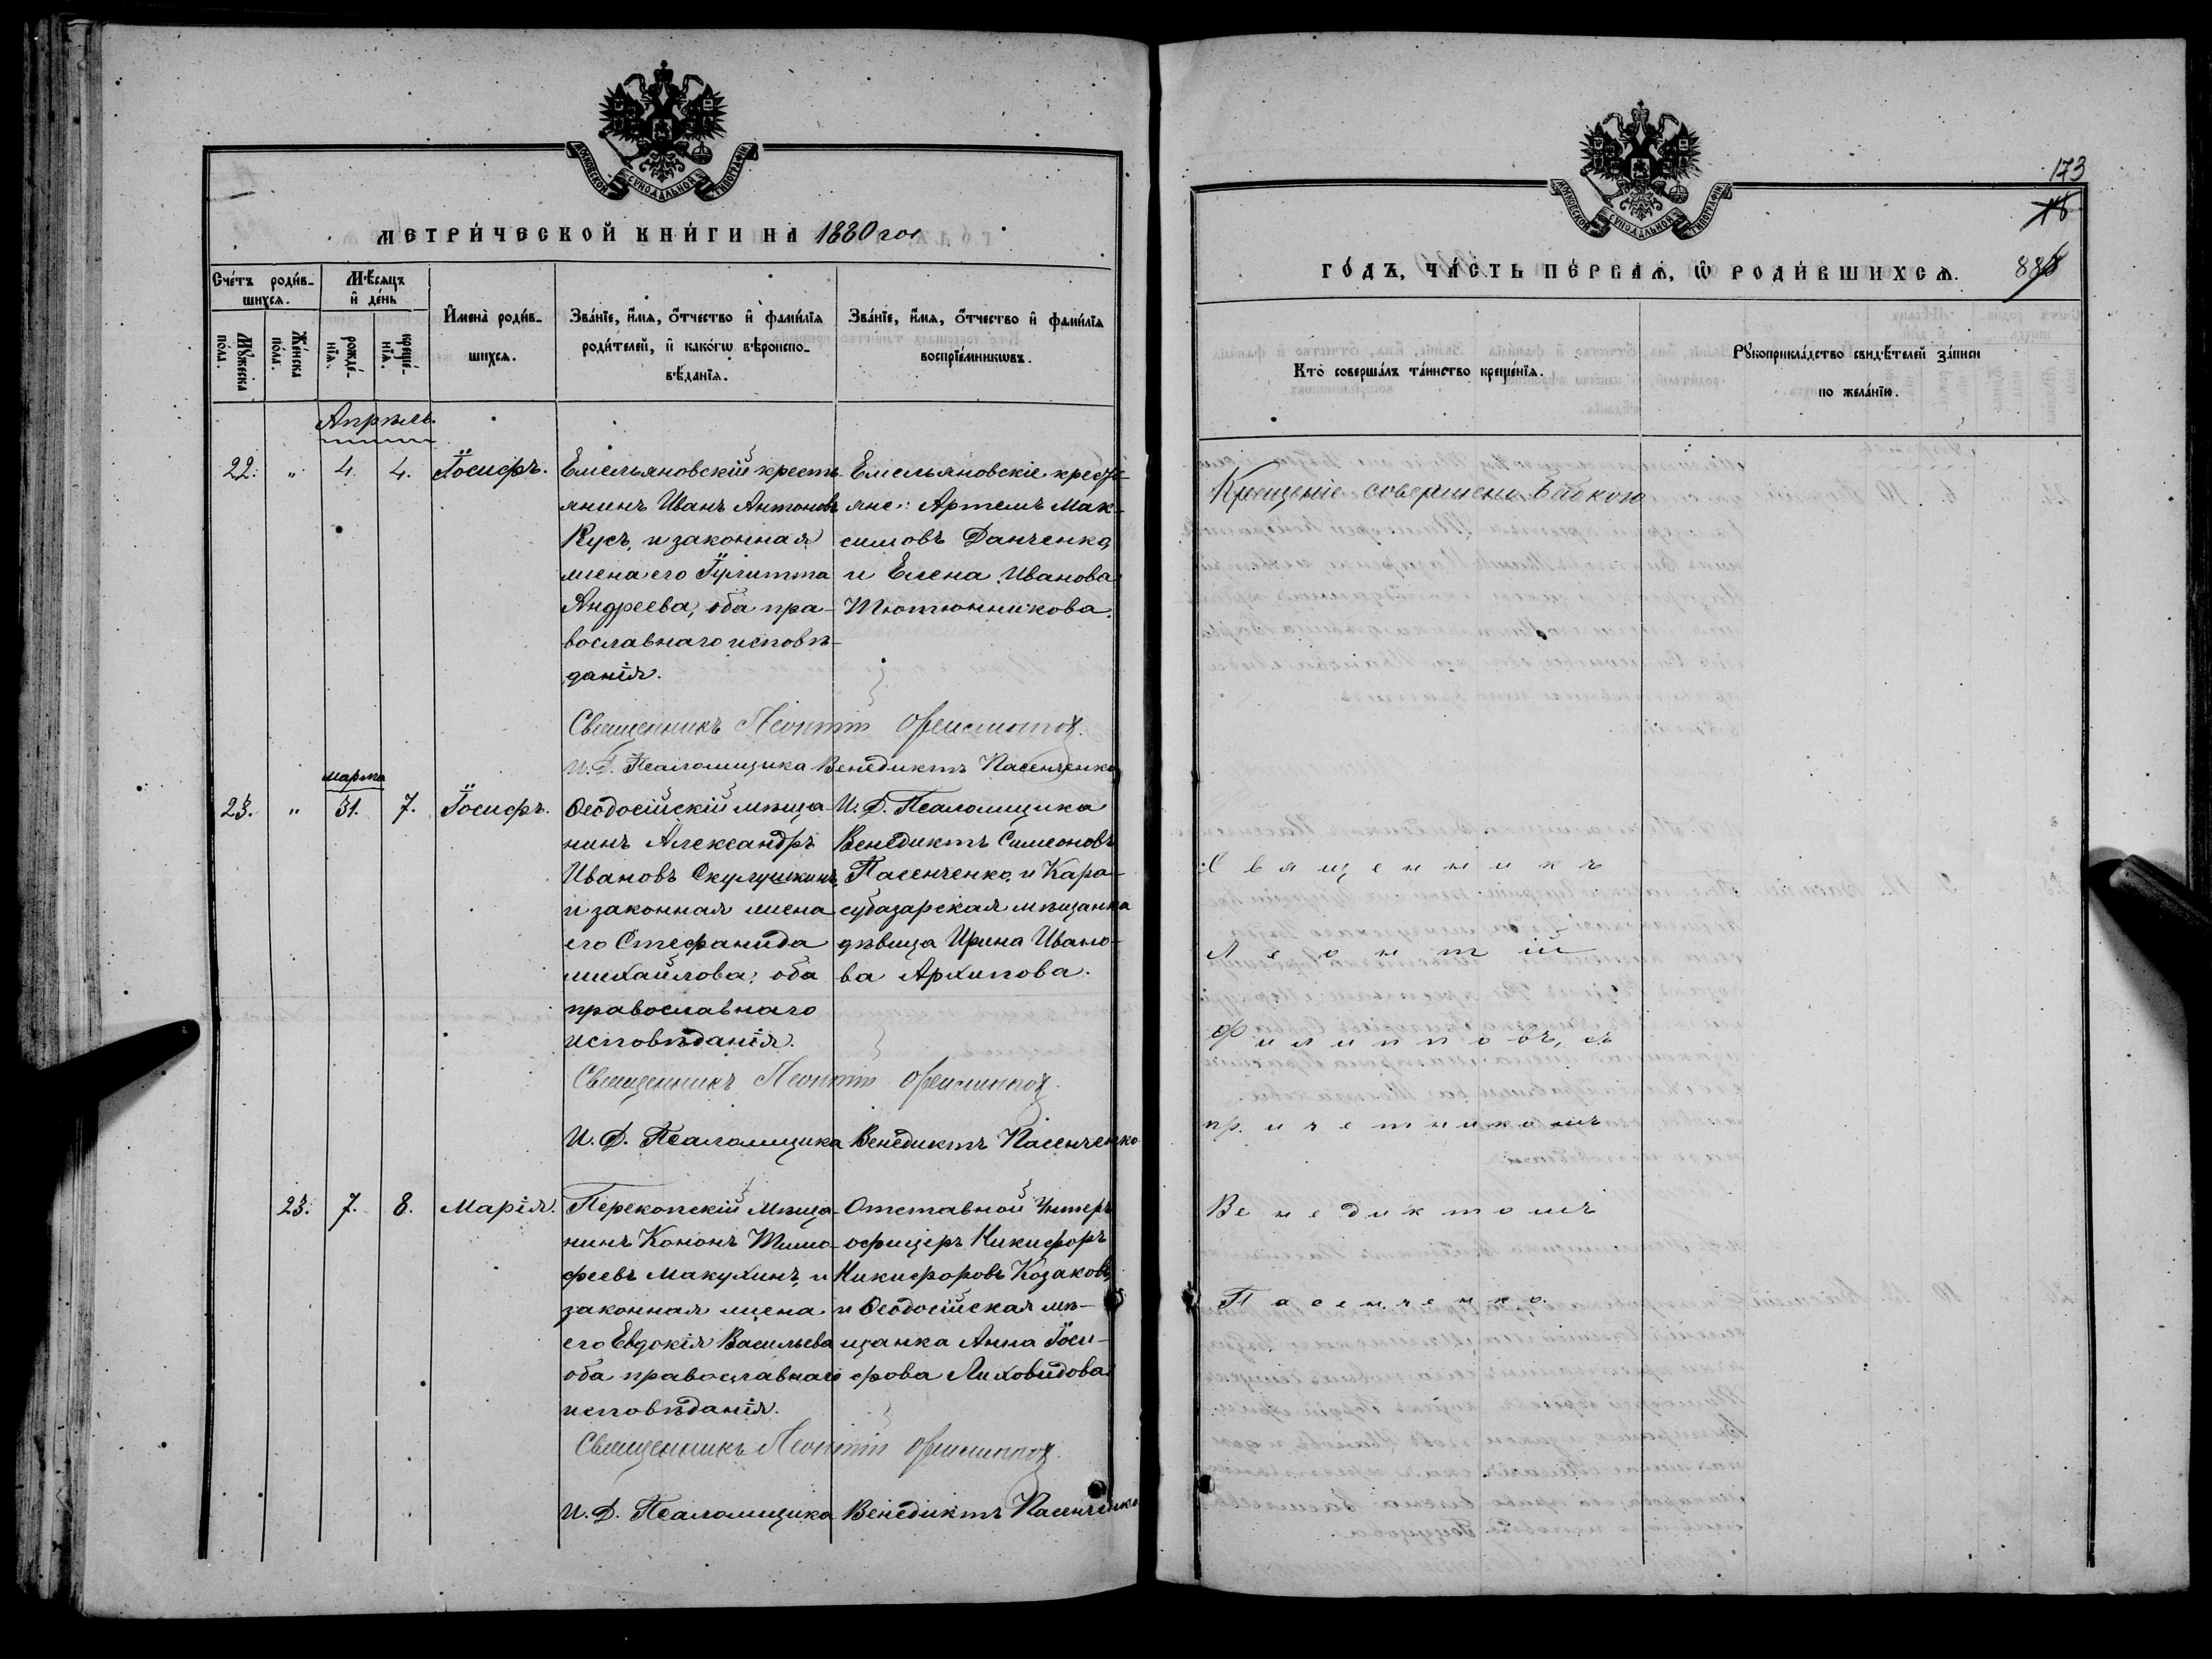 МОСКОВСКОЙ СѴНОДАЛЬНОЙ ТИПОГРАФІИ
МЕТРИ́ЧЕСКОЙ КНИ́ГИ НА 1880 год
Сче́тъ роди́в-
шихсѧ.
Мѣ́сѧцъ
и҆ де́нь
Мꙋ́жеска
по́ла.
Же́нска
по́ла.
рожде́-
нїѧ.
креще́-
нїѧ.
И҆мена̀ роди́в-
шихсѧ.
Зва́нїе, и҆́мѧ, ѻ҆́тчество и҆ фами́лїѧ
роди́телей, и҆ како́гѡ вѣроиспо-
вѣ́данїѧ.
Зва́нїе, и҆́мѧ, ѻ҆́тчество и҆ фами́лїѧ
воспрїе́мникѡвъ.
Апрѣль.
22. " 4. 4. Іосифъ.
Емельяновскій кресть-
янинъ Иванъ Антоновъ
Кусъ, и законная
жена его Іулитта
Андреева, оба пра-
вославнаго исповѣ-
данія.
Емельяновскіе кресть-
яне: Артемъ Мак-
симовъ Данченко,
и Елена Иванова
Тютюнникова.
Священникъ Леонтій Филиппов
И. Д. Псаломщика Венедиктъ Пасенченко
марта
23. " 31. 7. Іосифъ.
Ѳеодосійскій мѣща-
нинъ Александръ
Ивановъ Скулушкинъ,
и законная жена
его Стефанида
Михайлова, оба
православнаго
исповѣданія.
И. Д. Псаломщика
Венедиктъ Симеоновъ
Пасенченко, и Кара-
субазарская мѣщанка
дѣвица Ирина Ивано-
ва Архипова.
Священникъ Леонтій Филиппов
И. Д. Псаломщика Венедиктъ Пасенченко
23. 7. 8. Марія.
Перекопскій мѣща-
нинъ Кононъ Тимо-
феевъ Макухинъ, и
законная жена
его Евдокія Васильева
оба православнаго
исповѣданія.
Отставной Унтеръ
офицеръ Никифоръ
Никифоровъ Козаковъ,
и Ѳеодосійская мѣ-
щанка Анна Іоси-
фова Лиховидова
Священникъ Леонтій Филиппов
И. Д. Псаломщика Венедиктъ Пасенченко
173
МОСКОВСКОЙ СѴНОДАЛЬНОЙ ТИПОГРАФІИ
ГО́ДЪ, ЧА́СТЬ ПЕ́РВАѦ, Ѡ҆ РОДИ́ВШИХСѦ.
Кто̀ соверша́лъ та́инство креще́нїѧ.
Рꙋкоприкла́дство свидѣ́телей за́писи
по жела́нїю.
Крещеніе совершено бабкою
Священникъ
Леонтій
Филипповъ, съ
причетникомъ
Венедиктомъ
Пасенченко.